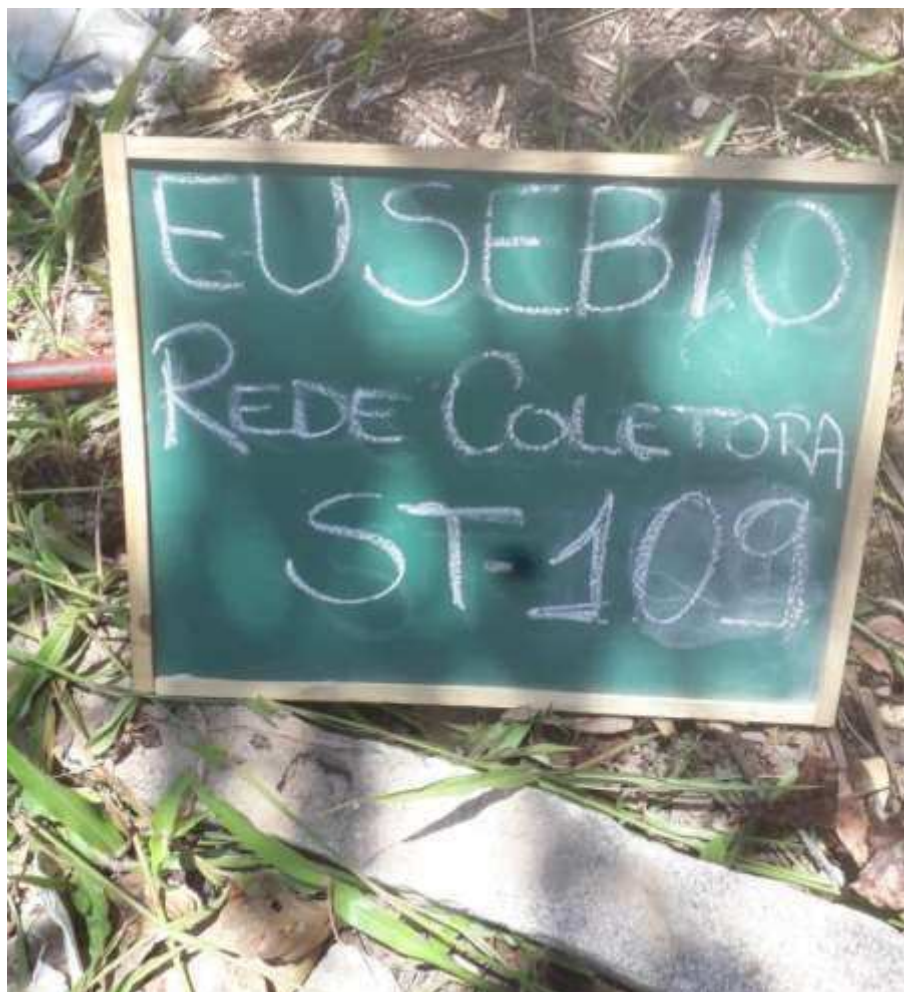 EUSEBIO
REDE COLETORA
ST-109